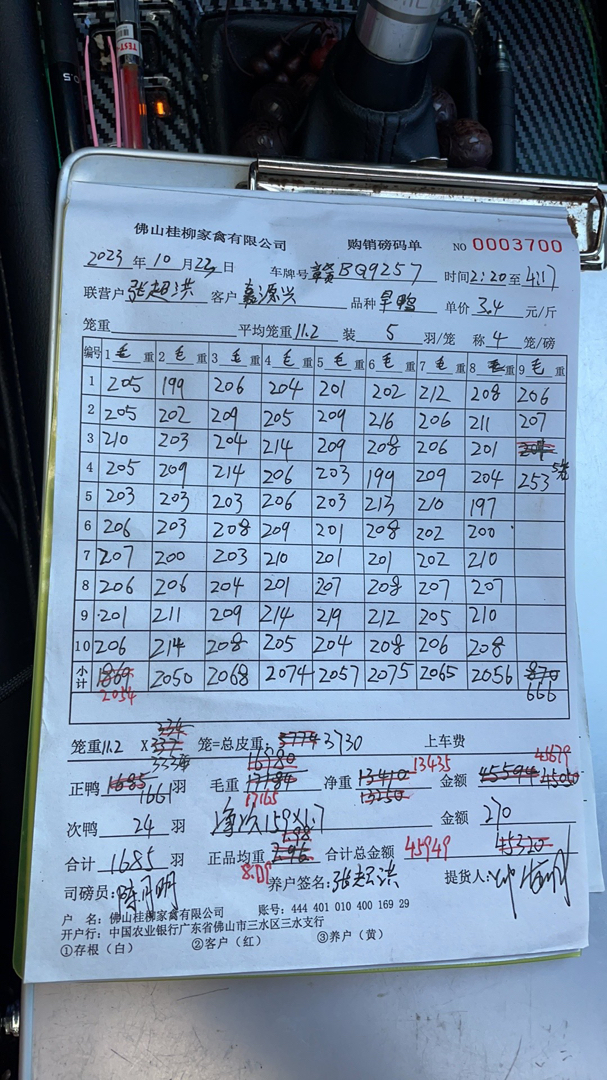 佛山桂柳家禽有限公司 购销磅码单 NO 0003700
2023 年 10 月 22 日 车牌号 BQ9257 时间 2:20 至 4:17
联营户 张超洪 客户 源兴 品种 旱鸭 单价 3.4 元/斤
笼重 平均笼重 11.2 装 5 羽/笼 称 4 笼/磅
编号 1 毛 重 2 毛 重 3 毛 重 4 毛 重 5 毛 重 6 毛 重 7 毛 重 8 毛 重 9 毛 重
1 205 199 206 204 201 202 212 208 206
2 205 202 209 205 209 216 206 211 207
3 210 203 204 214 209 208 206 201 204
4 205 209 214 206 203 199 209 204 253 5笼
5 203 203 203 206 203 213 210 197
6 206 203 208 209 201 208 202 200
7 207 200 203 210 201 201 202 210
8 206 206 204 201 207 208 207 207
9 201 211 209 214 219 212 205 210
10 206 214 208 205 204 208 206 208
小计 1869 2050 2068 2074 2057 2075 2065 2056 870
2054 666
334
笼重 11.2 X 337 笼=总皮重: 3774 3730 上车费
333
16780 13435 45679
正鸭 1685 1661 羽 毛重 17184 净重 13410 金额 45594 45050
17165 13250
次鸭 24 羽 159×1.7 金额 270
7.98
合计 1685 羽 正品均重 7.96 合计总金额 45949 45320
8.09
司磅员: 陈月明 养户签名: 张超洪 提货人:
户 名: 佛山桂柳家禽有限公司 账号: 444 401 010 400 169 29
开户行: 中国农业银行广东省佛山市三水区三水支行
①存根(白) ②客户(红) ③养户(黄)